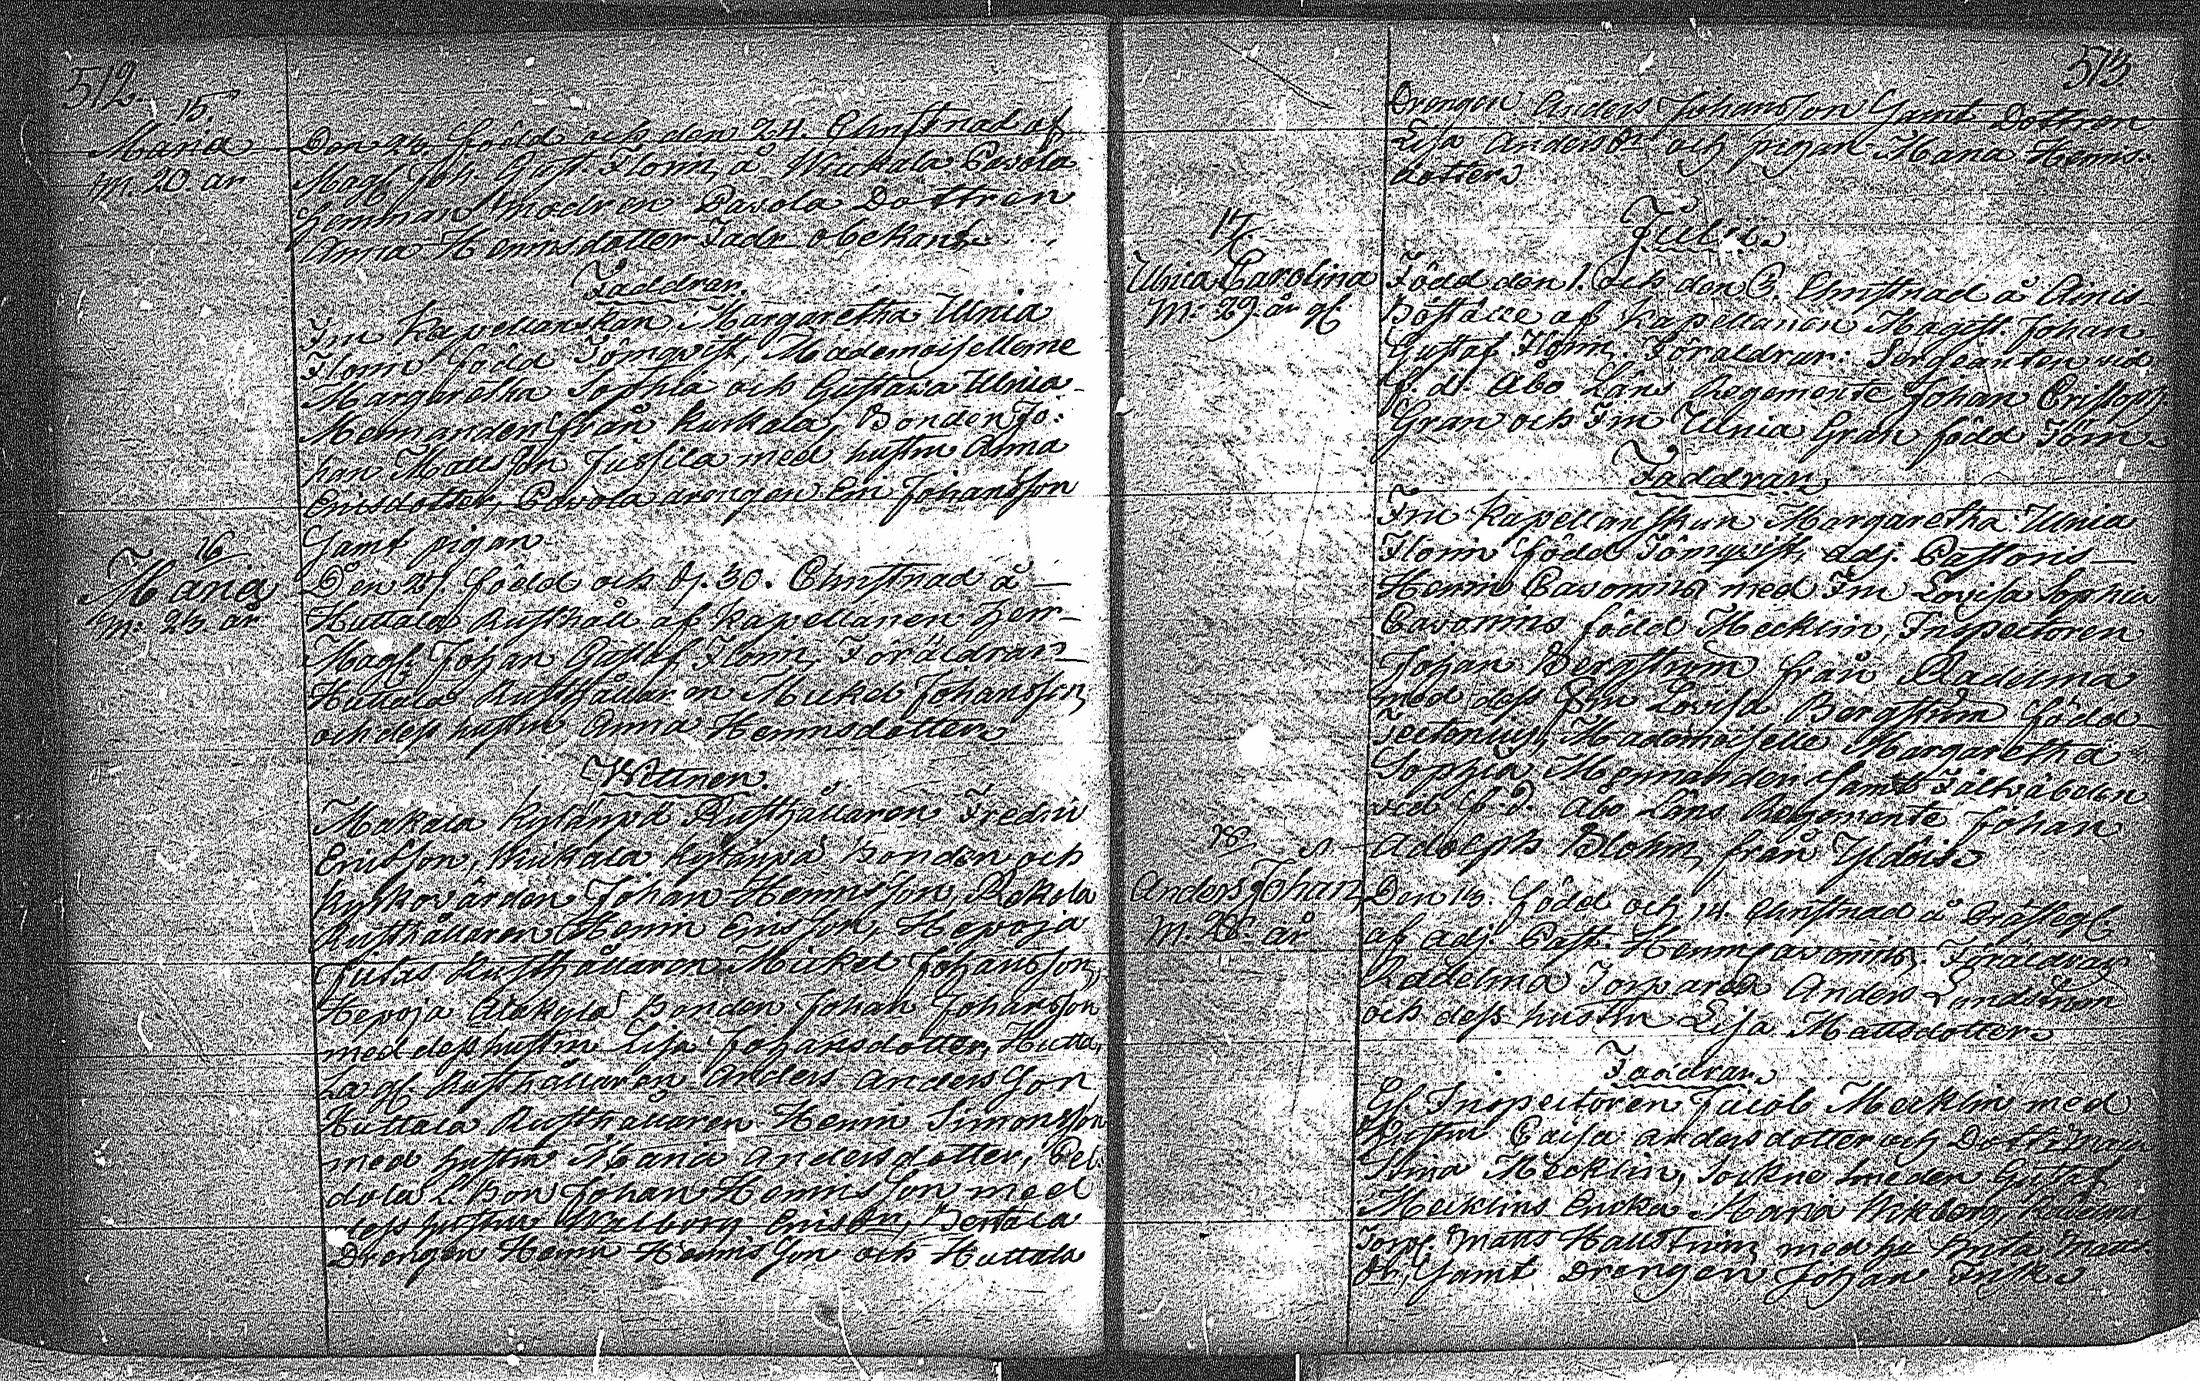 512.
15.
Maria
M. 20. år
Den 23 född och den 24. Christnad af
Mag. Joh. Gust. Florin, å Wiukala Pavola
hemman modren Pavola Dottren
Anna Henriksdotter Fadr obekant.
Faddrar
Fru Kapellanskan Margaretha Ulrica
Florin född Törnqvist, Mademoisellerne
Margaretha Sophia och Gustava Ulrica
från Kuskala, Bonden Jo:
han Mattsson Jussila med hustru Anna
Ericsdotter, Pavola drengen Eric Johansson
samt pigan
16
Maria
M. 23. år
Den 27. född och d. 30. Christnad å
Huttala Rusthåll af Kapellanen Herr
Mag. Johan Gustaf Florin, Föräldrar
Huttala Rusthållaren Mickel Johansson,
och dess hustru Anna Henricsdotter
Wittnen.
Makala Kylänpä Rusthållaren Fredric
Ericsson, Wiukala Kylänpä Bonden och
Kyrkovärden Johan Henricsson, Rekola
Rusthållaren Henric Ericsson, Hepoja
Jutas Rusthållaren Mickel Johansson,
Hepoja Alakylä Bonden Johan Johansson
med dess hustru Lisa Johansdotter, Hutta
la gl. Rusthållaren Anders Andersson
Huttala Rusthållaren Henric Simonsson
med hustru Maria Andersdotter, Pel
dola Bon Johan Henricsson med
dess hustru Walborg Ericsdr, Bertala
Drengen Henric Henricsson och Huttala
513
Drengen Anders Johansson samt Dottren
Lisa Andersdr och pigan Maria Henrics
dotter
Julii
17
Ulrica Carolina
M: 29. år gl.
Född den 1. och den 3. Christnad å
Boställe af Kapellanen Magist. Johan
Gustaf Florin. Föräldrar: Sergeanten vid
f. d. Åbo Läns Regemente Johan Christoph
Gran och Fru Ulrica Gran född Törn
Faddrar
Fru Kapellanskan Margaretha Ulrica
Florin född Törnqvist, Adj. Pastoris
Henric Cavonius med Fru Lovisa Sophia
Cavonius född Mecklin, Inspectoren
Johan Bergström från Radelma
med dess Fru Lovisa Bergström född
Mademoiselle Margaretha
Sophia samt Fältväbeln
vid f. d. Åbo Läns Regemente Johan
Adolph Blohm från Yldöis
18
Anders Johan
M: 28. år
Den 13. född och 14. Christnad å
af Adj. Past. Henric Cavonius. Föräldrar
Radelma Torparen Anders
och dess hustru Lisa Mattsdotter
Faddrar
Gl. Inspectoren Jacob Mecklin med
hustru Caisa Andersdotter och Dottr
Mecklin, Sockne Smeden Gustaf
Mecklins Enka Maria Wikberg,
Torp Matts med h. Brita Matts
dr, samt Drengen Johan